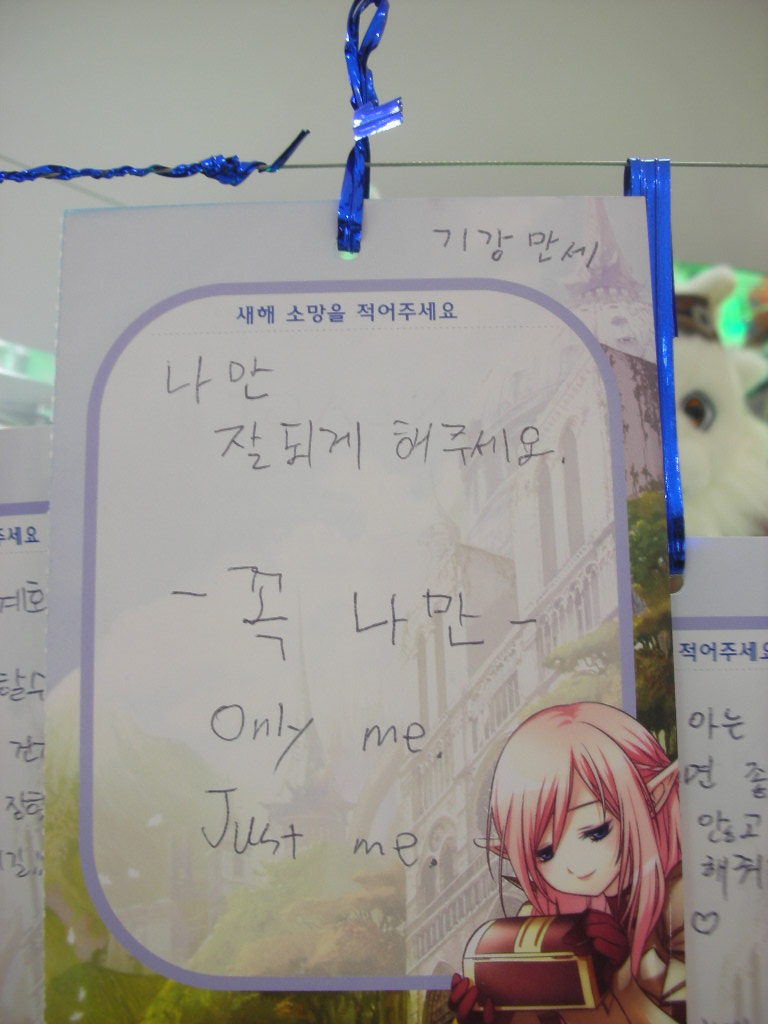 기강만세
새해 소망을 적어주세요
나만
잘되게 해주세요.
- 꼭 나만 -
Only me.
Just me.
주세요
계호
탈수
적어주세요
아는
면 좋
않고
해줘
♡